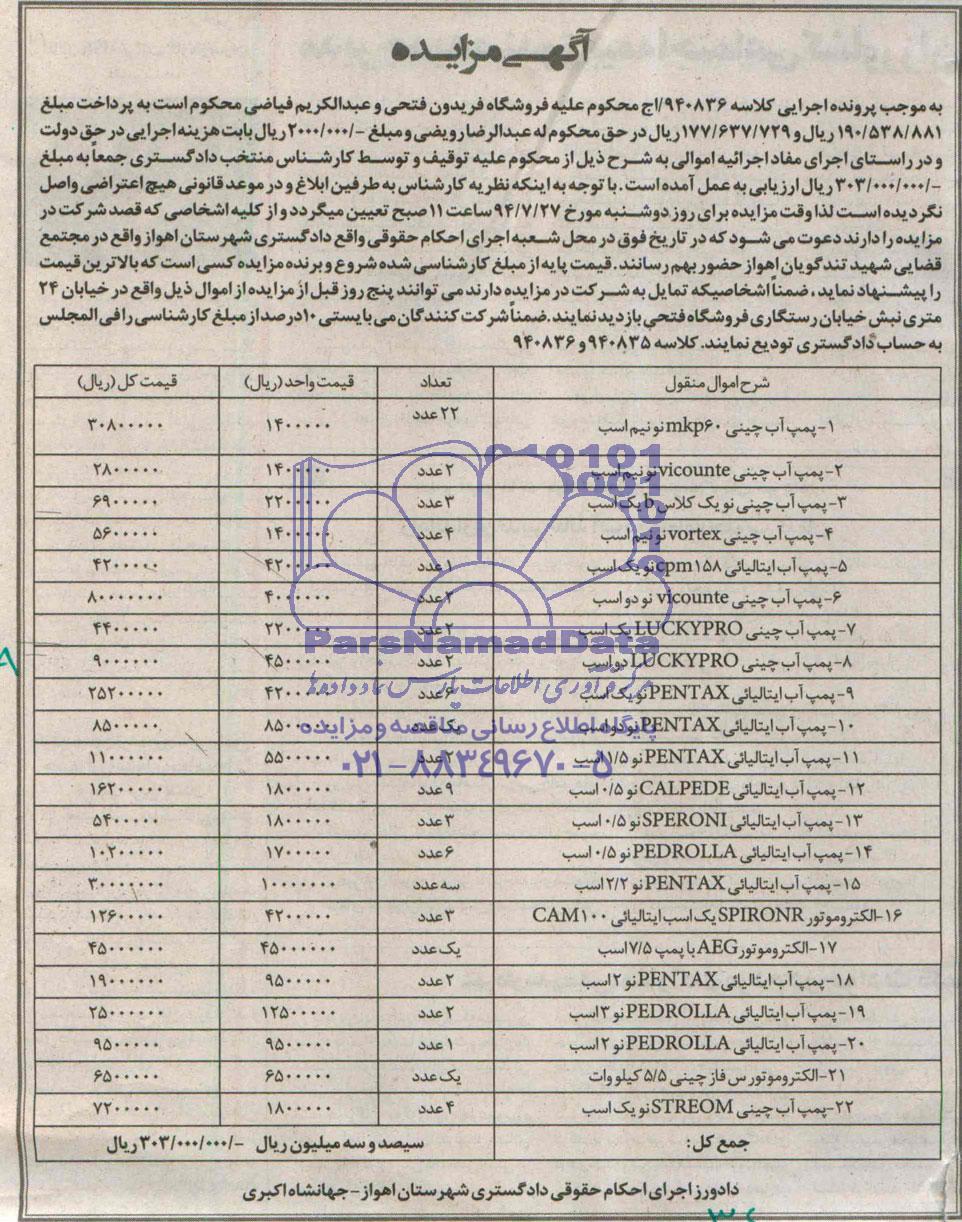 آگهی مزایده
به موجب پرونده اجرایی کلاسه ۹۴۰۸۳۶/اج محکوم علیه فروشگاه فریدون فتحی و عبدالکریم فیاضی محکوم است به پرداخت مبلغ
۱۹۰/۵۳۸/۸۸۱ ریال و ۱۷۷/۶۳۷/۷۲۹ ریال در حق محکوم له عبدالرضا رویضی و مبلغ -/۲۰۰۰/۰۰۰ ریال بابت هزینه اجرایی در حق دولت
و در راستای اجرای مفاد اجرائیه اموالی به شرح ذیل از محکوم علیه توقیف و توسط کارشناس منتخب دادگستری جمعاً به مبلغ
-/۳۰۳/۰۰۰/۰۰۰ ریال ارزیابی به عمل آمده است. با توجه به اینکه نظریه کارشناس به طرفین ابلاغ و در موعد قانونی هیچ اعتراضی واصل
نگردیده است لذا وقت مزایده برای روز دوشنبه مورخ ۹۴/۷/۲۷ ساعت ۱۱ صبح تعیین میگردد و از کلیه اشخاصی که قصد شرکت در
مزایده را دارند دعوت می شود که در تاریخ فوق در محل شعبه اجرای احکام حقوقی واقع دادگستری شهرستان اهواز واقع در مجتمع
قضایی شهید تندگویان اهواز حضور بهم رسانند. قیمت پایه از مبلغ کارشناسی شده شروع و برنده مزایده کسی است که بالاترین قیمت
را پیشنهاد نماید، ضمناً اشخاصیکه تمایل به شرکت در مزایده دارند می توانند پنج روز قبل از مزایده از اموال ذیل واقع در خیابان ۲۴
متری نبش خیابان رستگاری فروشگاه فتحی بازدید نمایند. ضمناً شرکت کنندگان می بایستی ۱۰ درصد از مبلغ کارشناسی را فی المجلس
به حساب دادگستری تودیع نمایند. کلاسه ۹۴۰۸۳۵ و ۹۴۰۸۳۶
شرح اموال منقول تعداد قیمت واحد (ریال) قیمت کل (ریال)
۱- پمپ آب چینی mkp۶۰ نو نیم اسب ۲۲ عدد ۱۴۰۰۰۰۰ ۳۰۸۰۰۰۰۰
۲- پمپ آب چینی vicounte نو نیم اسب ۲ عدد ۱۴۰۰۰۰۰ ۲۸۰۰۰۰۰
۳- پمپ آب چینی نو یک کلاس b یک اسب ۳ عدد ۲۲۰۰۰۰۰ ۶۹۰۰۰۰۰
۴- پمپ آب چینی vortex نو نیم اسب ۴ عدد ۱۴۰۰۰۰۰ ۵۶۰۰۰۰۰
۵- پمپ آب ایتالیائی cpm۱۵۸ نو یک اسب ۱ عدد ۴۲۰۰۰۰۰ ۴۲۰۰۰۰۰
۶- پمپ آب چینی vicounte نو دو اسب ۲ عدد ۴۰۰۰۰۰۰ ۸۰۰۰۰۰۰۰
۷- پمپ آب چینی LUCKYPRO یک اسب ۲ عدد ۲۲۰۰۰۰۰ ۴۴۰۰۰۰۰
۸- پمپ آب چینی LUCKYPRO دو اسب ۲ عدد ۴۵۰۰۰۰۰ ۹۰۰۰۰۰۰
۹- پمپ آب ایتالیائی PENTAX نو یک اسب ۶ عدد ۴۲۰۰۰۰۰ ۲۵۲۰۰۰۰۰
۱۰- پمپ آب ایتالیائی PENTAX نو دو اسب یک عدد ۸۵۰۰۰۰۰ ۸۵۰۰۰۰۰
۱۱- پمپ آب ایتالیائی PENTAX نو ۱/۵ اسب ۲ عدد ۵۵۰۰۰۰۰ ۱۱۰۰۰۰۰۰
۱۲- پمپ آب ایتالیائی CALPEDE نو ۰/۵ اسب ۹ عدد ۱۸۰۰۰۰۰ ۱۶۲۰۰۰۰۰
۱۳- پمپ آب ایتالیائی SPERONI نو ۰/۵ اسب ۳ عدد ۱۸۰۰۰۰۰ ۵۴۰۰۰۰۰
۱۴- پمپ آب ایتالیائی PEDROLLA نو ۰/۵ اسب ۶ عدد ۱۷۰۰۰۰۰ ۱۰۲۰۰۰۰۰
۱۵- پمپ آب ایتالیائی PENTAX نو ۲/۲ اسب سه عدد ۱۰۰۰۰۰۰۰ ۳۰۰۰۰۰۰۰
۱۶-الکتروموتور SPIRONR یک اسب ایتالیائی CAM۱۰۰ ۳ عدد ۴۲۰۰۰۰۰ ۱۲۶۰۰۰۰۰
۱۷-الکتروموتور AEG با پمپ ۷/۵ اسب یک عدد ۴۵۰۰۰۰۰۰ ۴۵۰۰۰۰۰۰
۱۸- پمپ آب ایتالیائی PENTAX نو ۲ اسب ۲ عدد ۹۵۰۰۰۰۰ ۱۹۰۰۰۰۰۰
۱۹- پمپ آب ایتالیائی PEDROLLA نو ۳ اسب ۲ عدد ۱۲۵۰۰۰۰۰ ۲۵۰۰۰۰۰۰
۲۰- پمپ آب ایتالیائی PEDROLLA نو ۲ اسب ۱ عدد ۹۵۰۰۰۰۰ ۹۵۰۰۰۰۰
۲۱-الکتروموتور س فاز چینی ۵/۵ کیلو وات یک عدد ۶۵۰۰۰۰۰ ۶۵۰۰۰۰۰
۲۲-پمپ آب چینی STREOM نو یک اسب ۴ عدد ۱۸۰۰۰۰۰ ۷۲۰۰۰۰۰
جمع کل: سیصد و سه میلیون ریال -/۳۰۳/۰۰۰/۰۰۰ ریال
دادورز اجرای احکام حقوقی دادگستری شهرستان اهواز - جهانشاه اکبری
ParsNamadData
مرکز فرآوری اطلاعات پارس نماد داده ها
پایگاه اطلاع رسانی مناقصه و مزایده
۰۲۱-۸۸۳۴۹۶۷۰-۵